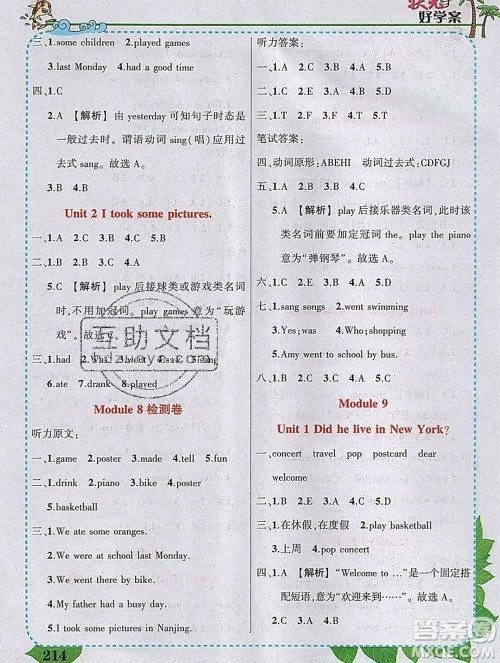 状元
好学案
三、1.some children　2.played games
3.last Monday　4.had a good time
四、1.C
2.A　【解析】　由 yesterday 可知句子时态是
一般过去时。谓语动词 sing(唱)应用过
去式 sang。故选 A。
3.B　4.B
Unit 2 I took some pictures.
一、1.A　2.C　3.C　4.B　5.B
二、1.B　2.B　3.A　4.A
5.C　【解析】　play 后接球类或游戏类名词
时,不用加冠词。play games 意为“玩游
戏”。故选 C。
三、1.had　2.　3.went　4.　5.
6.ate　7.drank　8.played
Module 8 检测卷
听力原文:
一、1.game　2.poster　3.made　4.tell　5.fun
二、1.drink　2.poster　3.made　4.send
5.basketball
三、1.We ate some oranges.
2.We were at school last Monday.
3.We went there by bike.
4.My father had a busy day.
5.I took some pictures in Nanjing.
214
听力答案:
一、1.A　2.B　3.A　4.A　5.B
二、1.C　2.B　3.D　4.A　5.E
三、1.T　2.F　3.F　4.F　5.T
笔试答案:
四、动词原形:ABEHI　动词过去式:CDFGJ
五、1.A　【解析】　play 后接乐器类名词时,该类
名词前要加定冠词 the。play the piano
意为“弹钢琴”。故选 A。
2.B　3.B　4.B　5.A
六、1.C　2.B　3.A　4.B　5.B
七、1.sang songs　2.went swimming
3.Yes;was　4.What;happy
5.Amy went to school by bus.
八、1.B　2.C　3.A　4.B　5.C
Module 9
Unit 1 Did he live in New York?
一、concert　travel　pop　postcard　dear
welcome
二、1.B　2.D　3.E　4.A　5.C
三、1.在休假,在度假　2.play basketball
3.上周　4.pop concert
四、1.A　【解析】　“Welcome to …”是一个固定搭
配短语,意为“欢迎来到……”。故选 A。
2.C　3.B　4.B　5.B
互助文档